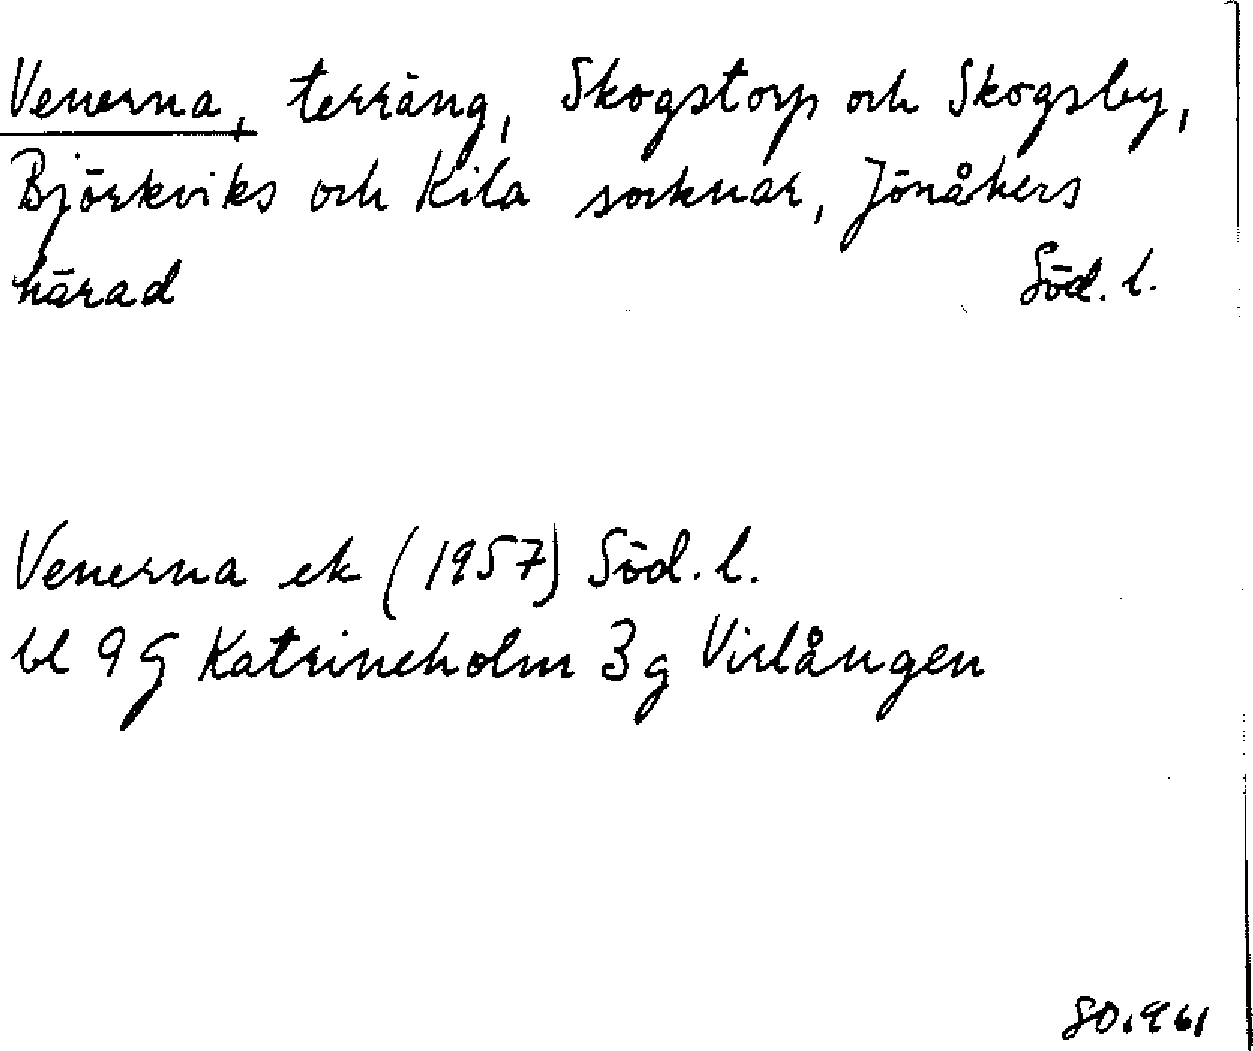 Venerna, terräng, Skogstorp och Skogsby,
Björkviks och Kila socknar, Jönåkers
härad Söd. l.
Venerna ek (1957) Söd. l.
bl 9 G Katrineholm 3 g Virlången